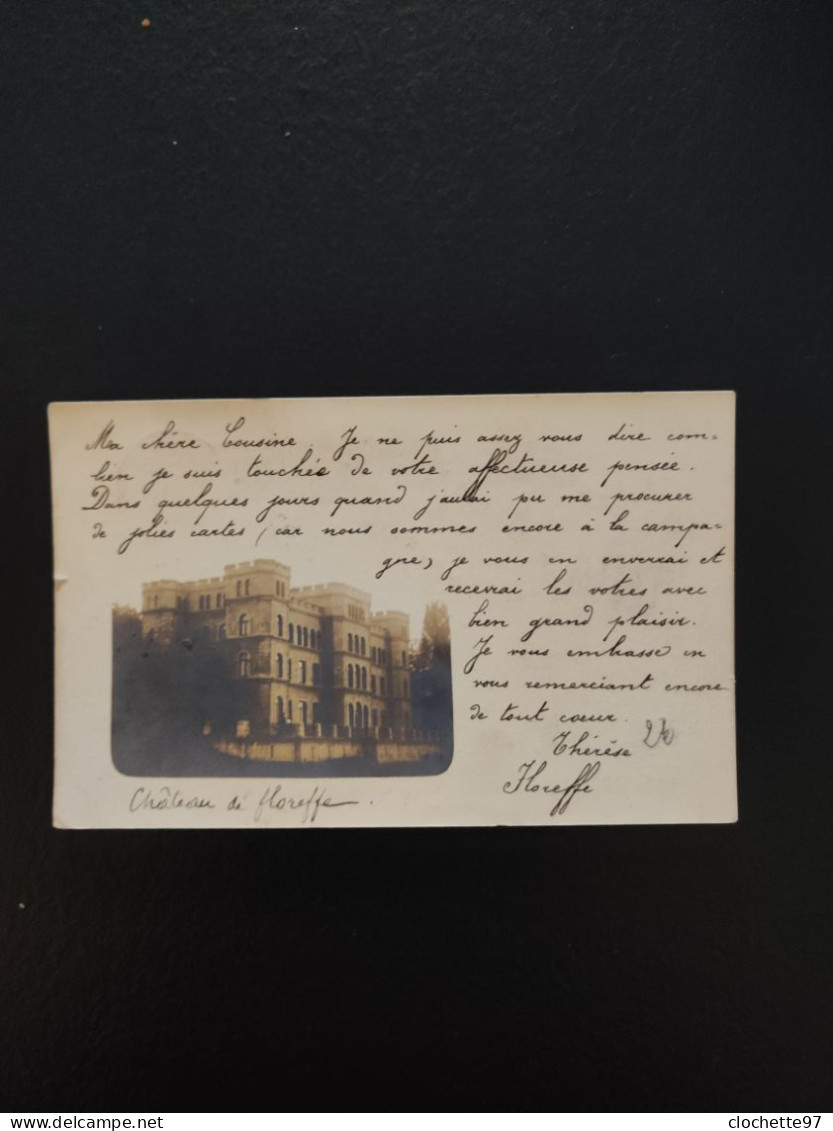 Ma chère Cousine. Je ne puis assez vous dire com-
bien je suis touchée de votre affectueuse pensée.
Dans quelques jours quand j'aurai pu me procurer
de jolies cartes, (car nous sommes encore à la campa-
gne), je vous en enverrai et
recevrai les vôtres avec
bien grand plaisir.
Je vous embrasse en
vous remerciant encore
de tout coeur.
Thérèse
Floreffe
Château de floreffe.
delcampe.net
clochette97